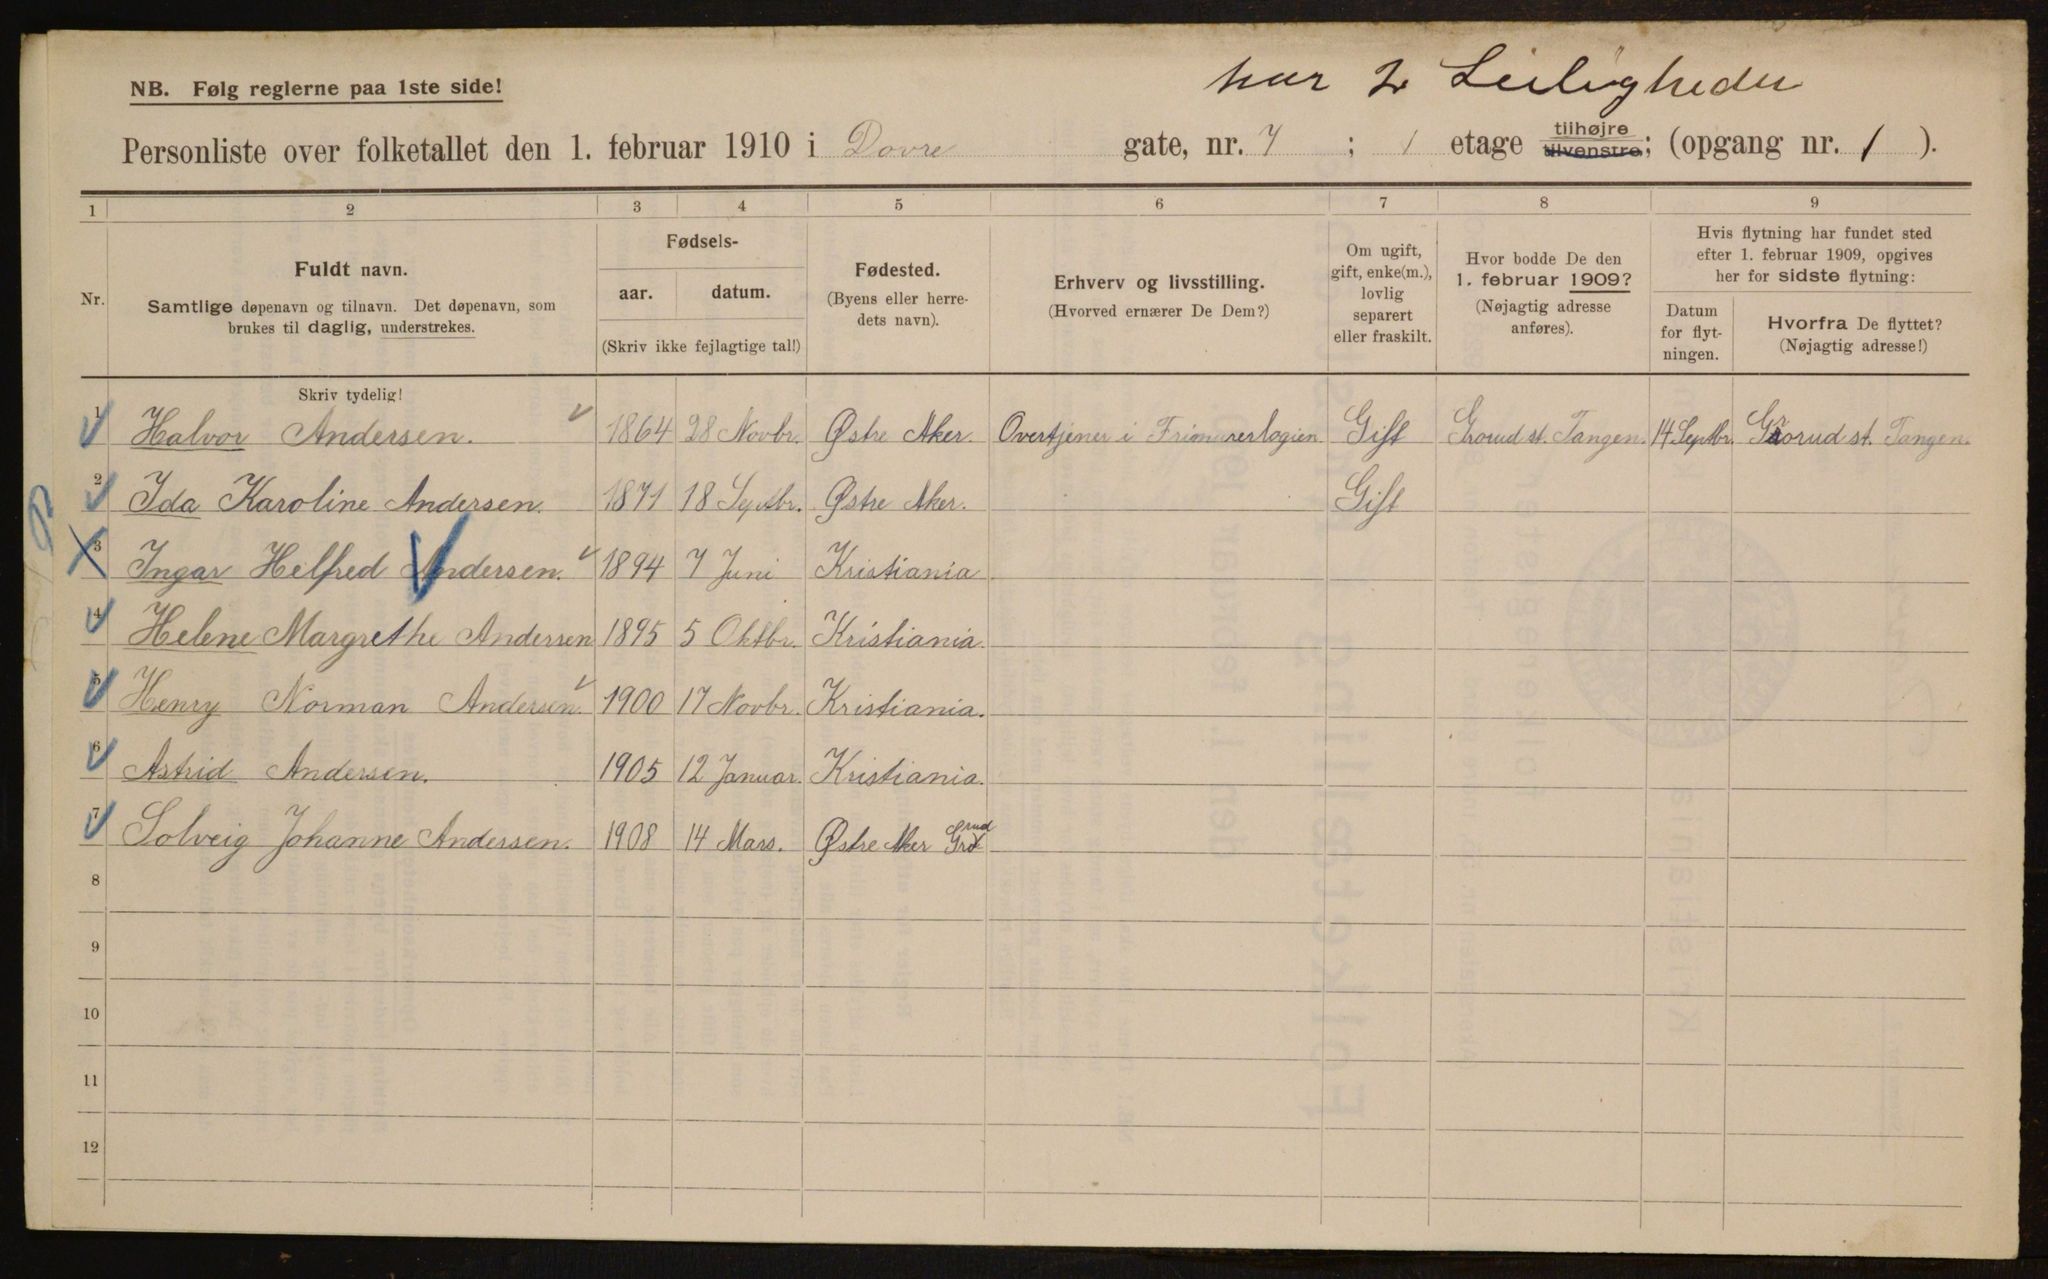 har 2 Leiligheder
NB. Følg reglerne paa 1ste side!
Personliste over folketallet den 1. februar 1910 i Dovre gate, nr. 7; 1 etage tilhøjre tilvenstre; (opgang nr. 1).
1 2 3 4 5 6 7 8 9
Nr.
Fuldt navn.
Samtlige døpenavn og tilnavn. Det døpenavn, som
brukes til daglig, understrekes.
Fødsels-
aar. datum.
(Skriv ikke fejlagtige tal!)
Fødested.
(Byens eller herre-
dets navn).
Erhverv og livsstilling.
(Hvorved ernærer De Dem?)
Om ugift,
gift, enke(m.),
lovlig
separert
eller fraskilt.
Hvor bodde De den
1. februar 1909?
(Nøjagtig adresse
anføres).
Hvis flytning har fundet sted
efter 1. februar 1909, opgives
her for sidste flytning:
Datum
for flyt-
ningen.
Hvorfra De flyttet?
(Nøjagtig adresse!)
Skriv tydelig!
1 Halvor Andersen. 1864 28 Novbr. Østre Aker. Overtjener i Frimurerlogien Gift Grorud st. Tangen. 14 Septbr. Grorud st. Tangen.
2 Ida Karoline Andersen. 1871 18 Septbr. Østre Aker. Gift
3 Ingar Helfred Andersen. 1894 7 Juni Kristiania
4 Helene Margrethe Andersen 1895 5 Oktbr. Kristiania.
5 Henry Norman Andersen. 1900 17 Novbr. Kristiania.
6 Astrid Andersen. 1905 12 Januar. Kristiania.
7 Solveig Johanne Andersen. 1908 14 Mars. Østre Aker Grorud
8
9
10
11
12